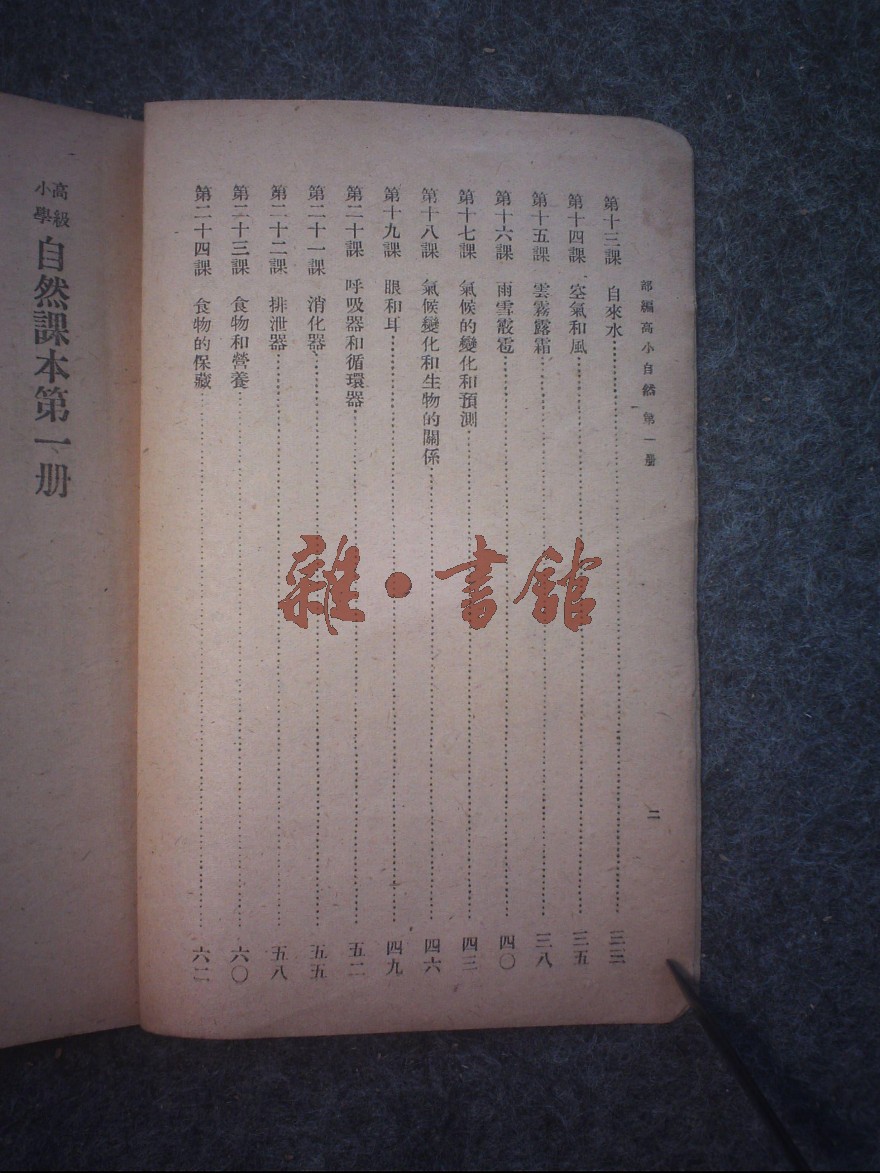 部編高小自然 第一册
二
第十三課 自來水 三三
第十四課 空氣和風 三五
第十五課 雲霧露霜 三八
第十六課 雨雪霰雹 四〇
第十七課 氣候的變化和預測 四三
第十八課 氣候變化和生物的關係 四六
第十九課 眼和耳 四九
第二十課 呼吸器和循環器 五二
第二十一課 消化器 五五
第二十二課 排泄器 五八
第二十三課 食物和營養 六〇
第二十四課 食物的保藏 六二
高級
小學
自然課本第一册
雜·書館